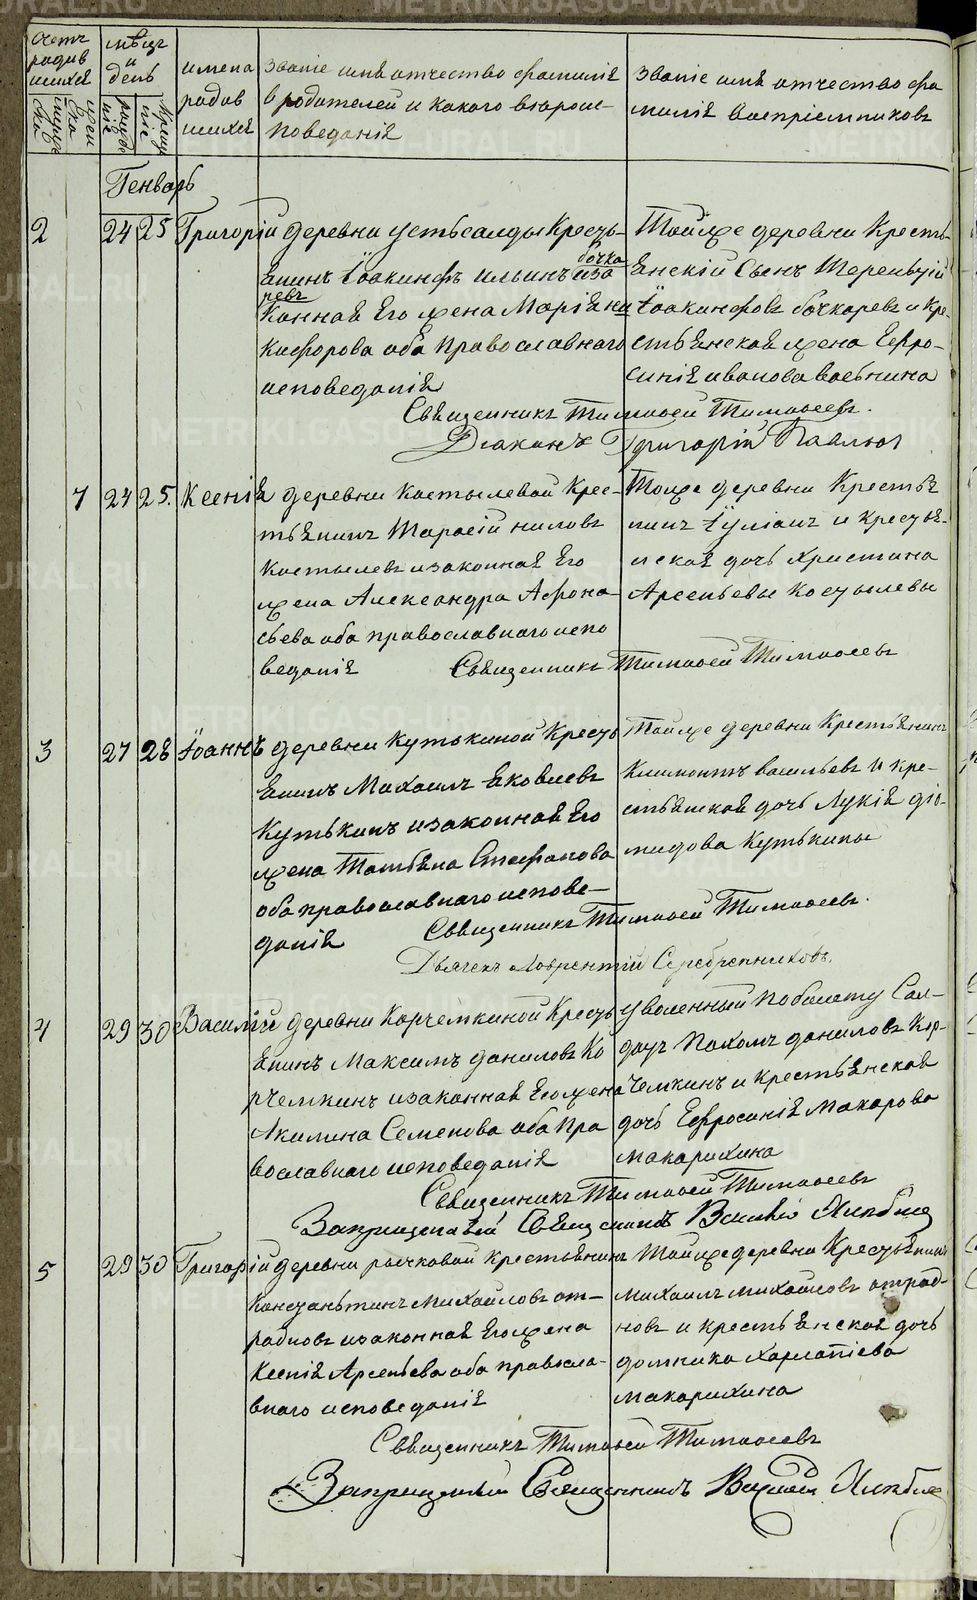 Счетъ родив шихся
мѣсяцъ и день
имена родив шихся
Званіе имя отчество фамилія
родителей и какого вѣроис-
поведанія
Званіе имя отчество фа
милія воспріемниковъ
Генварь
2 24 25 Григорій деревни устьсалды Кресть-
янинъ Іоакинфъ Ильинъ бочка
ревъ
иза
конная Его жена Марія Ни
кифорова оба православнаго
исповеданія
Тойже деревни Кресть
янскій Сынъ Терентій
Іоакинфовъ бочкаревъ и Кре-
стьянская жена Евро-
синія иванова
Священникъ Тимофей Тимофеевъ.
Діаконъ Григорій
1 24 25. Ксенія деревни Костылевой Крес-
тьянинъ Тарасій ниловъ
Костылевъ изаконная Его
жена Александра Афона-
сьева оба православнаго испо
веданія
Тойже деревни Крестья
нинъ Іуліанъ и крестья-
нская дочь Христина
Арсеньевы Костылевы
Священникъ Тимофей Тимофеевъ
3 27 28 Іоаннъ деревни Кутькиной Кресть
янинъ Михаилъ Яковлевъ
Кутькинъ изаконная Его
жена Татьяна Стефанова
оба православнаго испове-
данія
Тойже деревни Крестьянинъ
Климонтъ васильевъ и кре-
стьянская дочь Лукія діо-
мидова Кутькины
Священникъ Тимофей Тимофеевъ.
Дьячекъ Лаврентій Серебренниковъ.
4 29 30 Василій деревни Корчемкиной Кресть
янинъ Максимъ даниловъ Ко
рчемкинъ изаконная Его жена
Акилина Семенова оба пра
вославнаго исповеданія
уволенный по билету Сол-
датъ Пахомъ даниловъ Кор-
чемкинъ и крестьянская
дочь Евросинія Макарова
макарихина
Священникъ Тимофей Тимофеевъ
Запрещенный Священникъ Василій Хлѣбинъ
5 29 30 Григорій деревни рычковой крестьянинъ
Константинъ Михайловъ от-
радновъ изаконная Его жена
Ксенія Арсеньева оба правосла-
внаго исповеданія
Тойже деревни Крестьянинъ
михаилъ михайловъ отрад-
новъ и крестьянская дочь
домника Харлапіева
макарихина
Священникъ Тимофей Тимофеевъ
Запрещенный Священникъ Василій Хлѣбинъ
METRIKI.GASO-URAL.RU